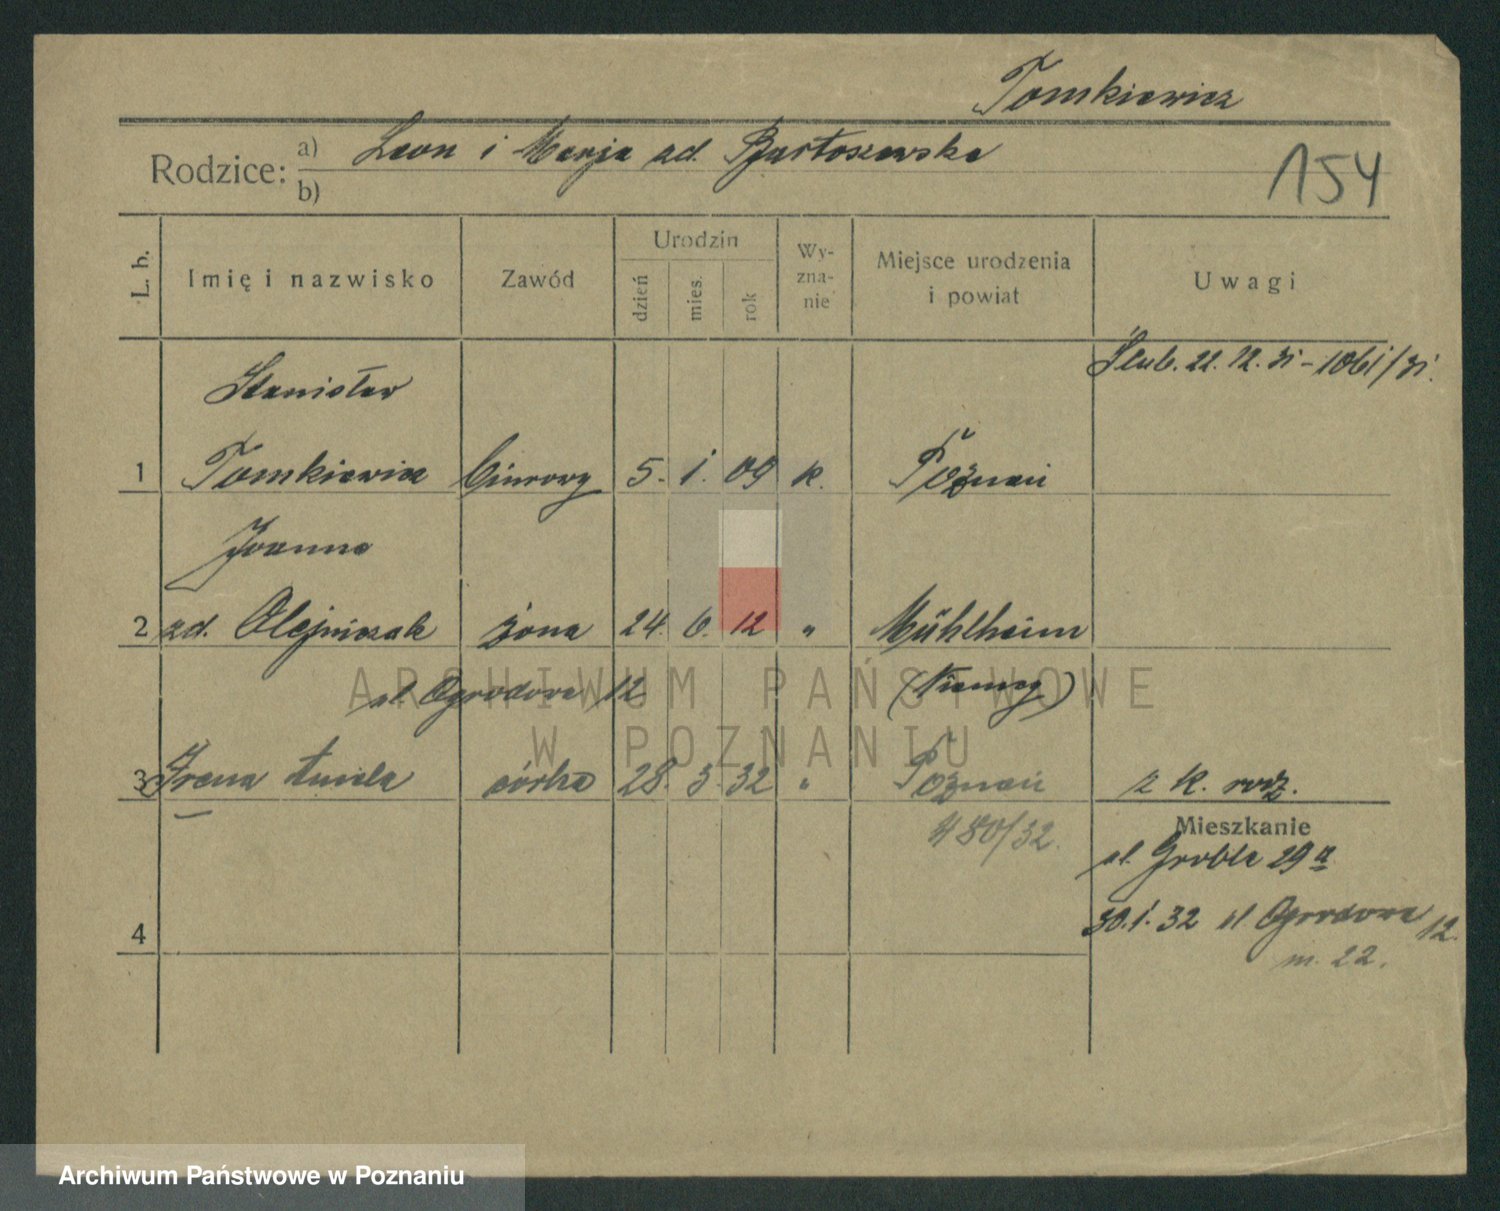 Tomkiewicz
Rodzice: a) Leon i Marja zd. Bartoszewska
b)
154
L. b. Imię i nazwisko Zawód Urodzin dzień mies. rok Wy-zna-nie Miejsce urodzenia i powiat Uwagi
Ślub. 22. 12. 31 - 1061/31.
Stanisław
1 Tomkiewicz biurowy 5. 1. 09 k. Poznań
Joanna
2 zd. Olejniczak żona 24. 6. 12 " Mühlheim
ul. Ogrodowa 12 (Niemcy)
3 Irena córka 28. 3. 32 " Poznań z k. rodz.
480/32.
Mieszkanie
ul. Grobla 29 a
4 30.1.32 ul Ogrodowa 12.
m. 22.
ARCHIWUM PAŃSTWOWE
W POZNANIU
Archiwum Państwowe w Poznaniu